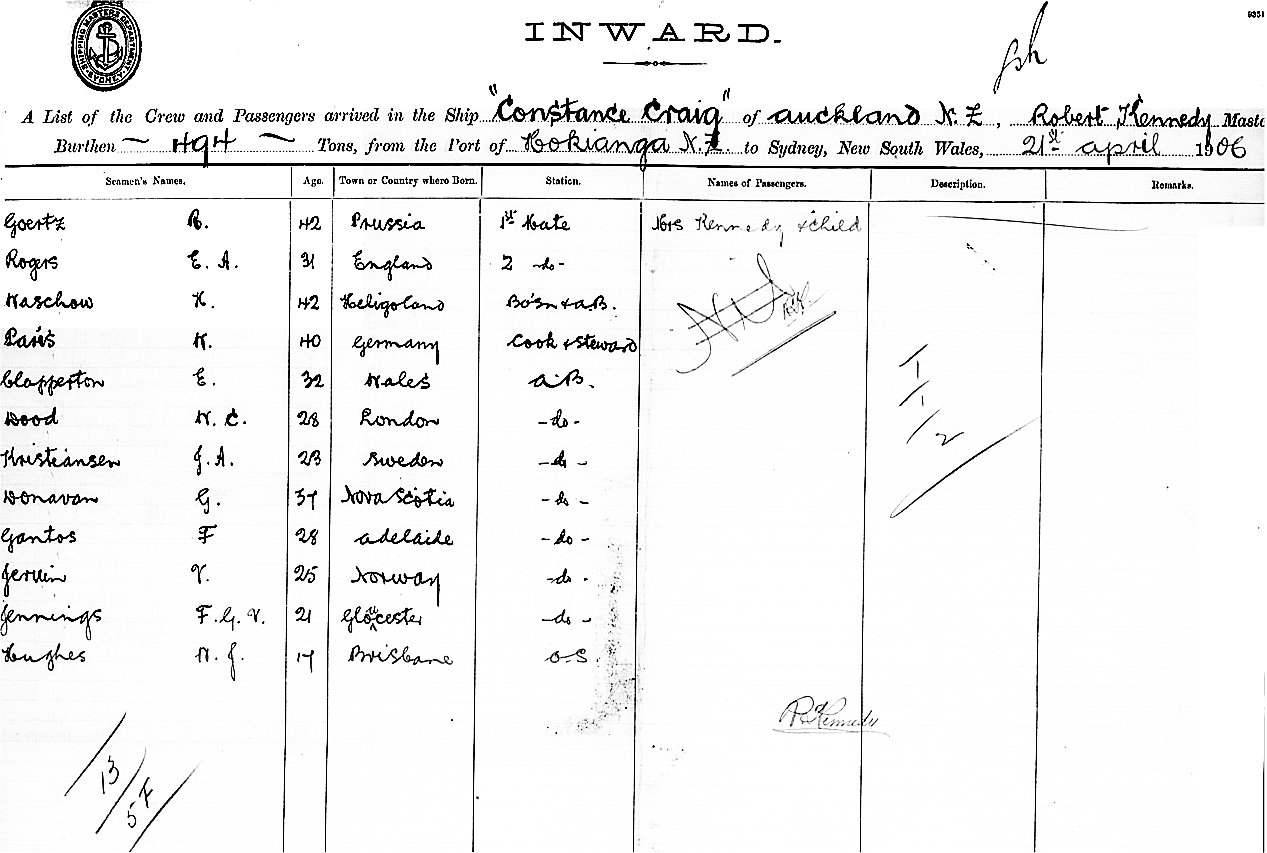 9351
SHIPPING MASTERS DEPARTMENT SYDNEY
INWARD.
A List of the Crew and Passengers arrived in the Ship "Constance Craig" of Auckland N.Z., Robert Kennedy Maste
Burthen ~ 494 ~ Tons, from the Port of Hokianga N.Z. to Sydney, New South Wales, 21st April 1906
Seamen's Names. Age. Town or Country where Born. Station. Names of Passengers. Description. Remarks.
Goertz R. 42 Prussia 1st Mate Mrs Kennedy & child
Rogers E. A. 31 England 2 -do-
Waschow H. 42 Heligoland Bo'sn & A.B.
Paris K. 40 Germany Cook & Steward
Clapperton E. 32 Wales A.B.
Wood W. C. 28 London -do-
Kristiansen J. A. 23 Sweden -do-
Donavan G. 37 Nova Scotia -do-
Gantos F 28 Adelaide -do-
V. 25 Norway -do-
Jennings F. G. V. 21 Gloucester -do-
Hughes W. J. 17 Brisbane O.S
1
1
2
R Kennedy
13
5 F